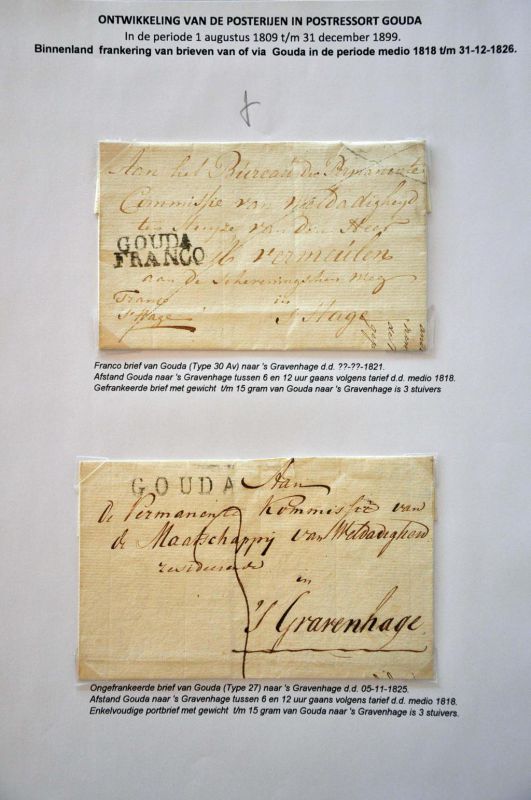 ONTWIKKELING VAN DE POSTERIJEN IN POSTRESSORT GOUDA
In de periode 1 augustus 1809 t/m 31 december 1899.
Binnenland frankering van brieven van of via Gouda in de periode medio 1818 t/m 31-12-1826.
Aan het Bureau der Permanente
Commissie van Weldadigheyd
ten Huyze van den Heer
GOUDA
FRANCO
Vermeulen
aan de Scheveningschen weg
Franco in
s' Hage s' Hage
Franco brief van Gouda (Type 30 Av) naar 's Gravenhage d.d. ??-??-1821.
Afstand Gouda naar 's Gravenhage tussen 6 en 12 uur gaans volgens tarief d.d. medio 1818.
Gefrankeerde brief met gewicht t/m 15 gram van Gouda naar 's Gravenhage is 3 stuivers
GOUDA Aan
de Permanente Kommissie van
de Maatschappij van Weldadigheid
resideerende
in
's Gravenhage.
Ongefrankeerde brief van Gouda (Type 27) naar 's Gravenhage d.d. 05-11-1825.
Afstand Gouda naar 's Gravenhage tussen 6 en 12 uur gaans volgens tarief d.d. medio 1818.
Enkelvoudige portbrief met gewicht t/m 15 gram van Gouda naar 's Gravenhage is 3 stuivers.